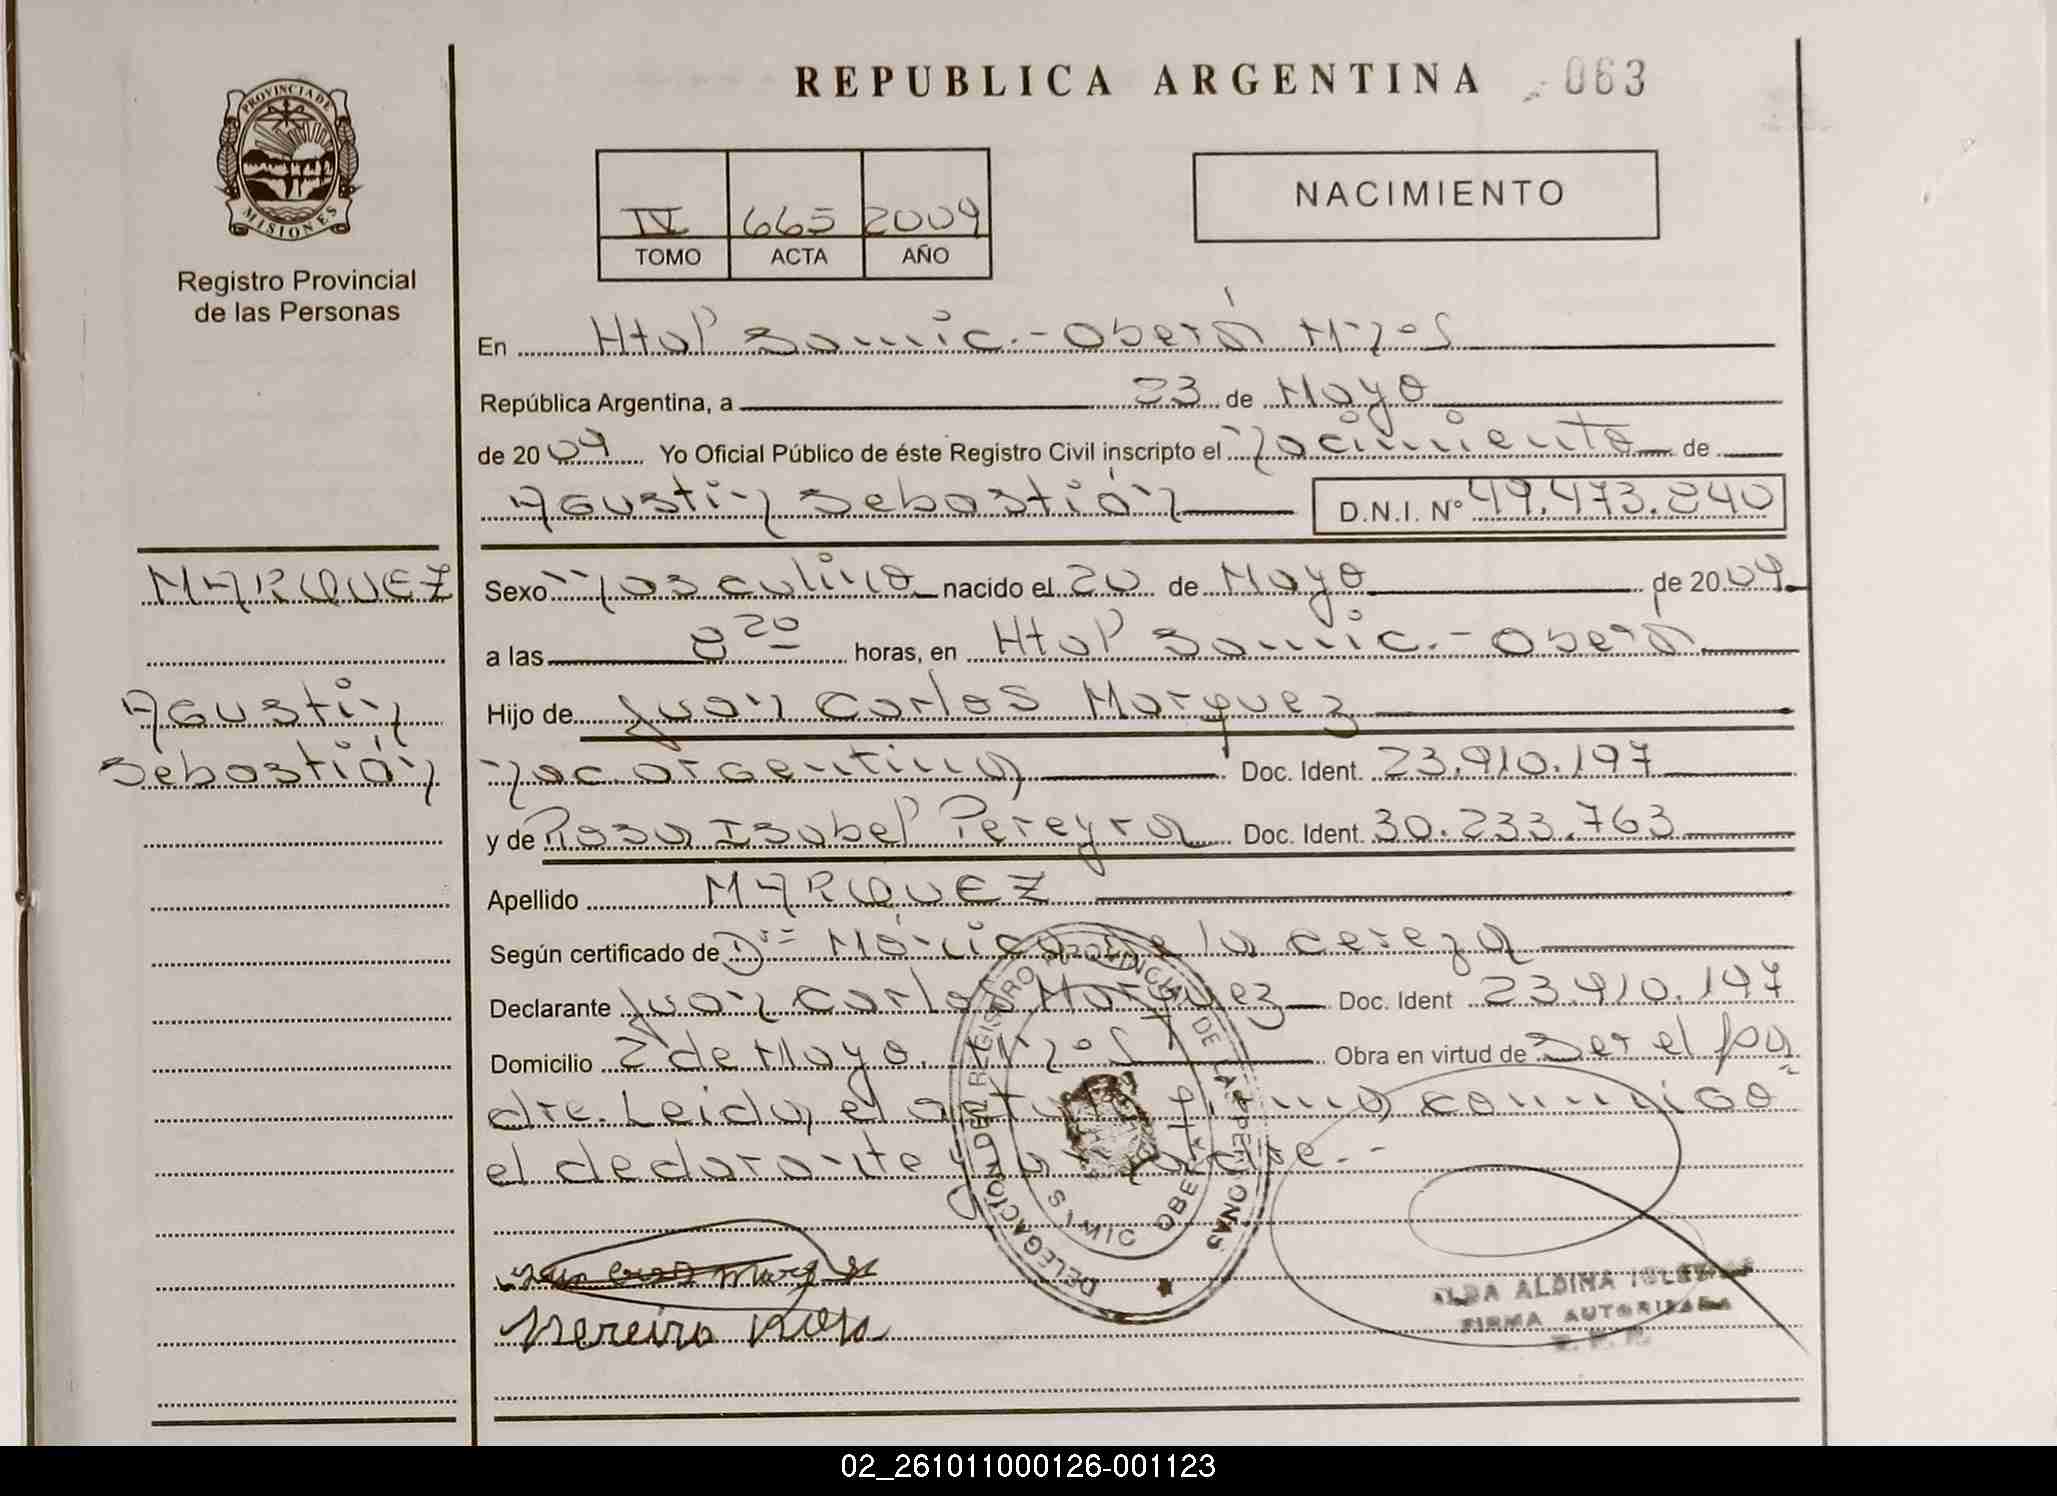 REPUBLICA ARGENTINA 063
PROVINCIA DE
MISIONES
Registro Provincial
de las Personas
IV 665 2009
TOMO ACTA AÑO
NACIMIENTO
En Htal Samic.- Oberá Mnes
República Argentina, a 23 de Mayo
de 2009 Yo Oficial Público de éste Registro Civil inscripto el nacimiento de
Agustin Sebastián D.N.I. Nº 49.473.240
MARQUEZ
Agustin
Sebastián
Sexo masculino nacido el 20 de Mayo de 2009.
a las 8 20 horas, en Htal Samic.- Oberá
Hijo de Juan Carlos Marquez
nac. argentina Doc. Ident. 23.910.197
y de Rosa Isabel Pereyra Doc. Ident. 30.233.763
Apellido MARQUEZ
Según certificado de Dra Mónica de la cereza
Declarante Juan Carlos Marquez Doc. Ident 23.910.197
Domicilio 2 de Mayo. Mnes Obra en virtud de ser el pa
dre. Leida el acta firma conmigo
el declarante y la madre.-
DELEGACION DEL REGISTRO PROVINCIAL DE LAS PERSONAS
SAMIC OBERA
Juan Carlos Marquez
Pereira Rosa
ALDA ALDINA IGLESIAS
FIRMA AUTORIZADA